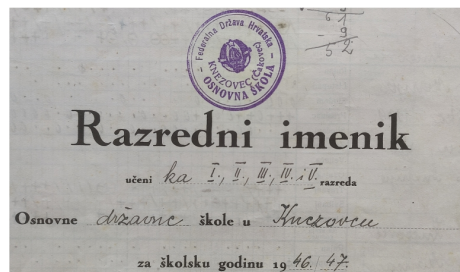 6 1
- 9
5 2
Federalna Država Hrvatska
KNEZOVEC (Čakovec)
OSNOVNA ŠKOLA
Razredni imenik
učeni ka I., II., III., IV. i V. razreda
Osnovne državne škole u Knezovcu
za školsku godinu 1946. 47.